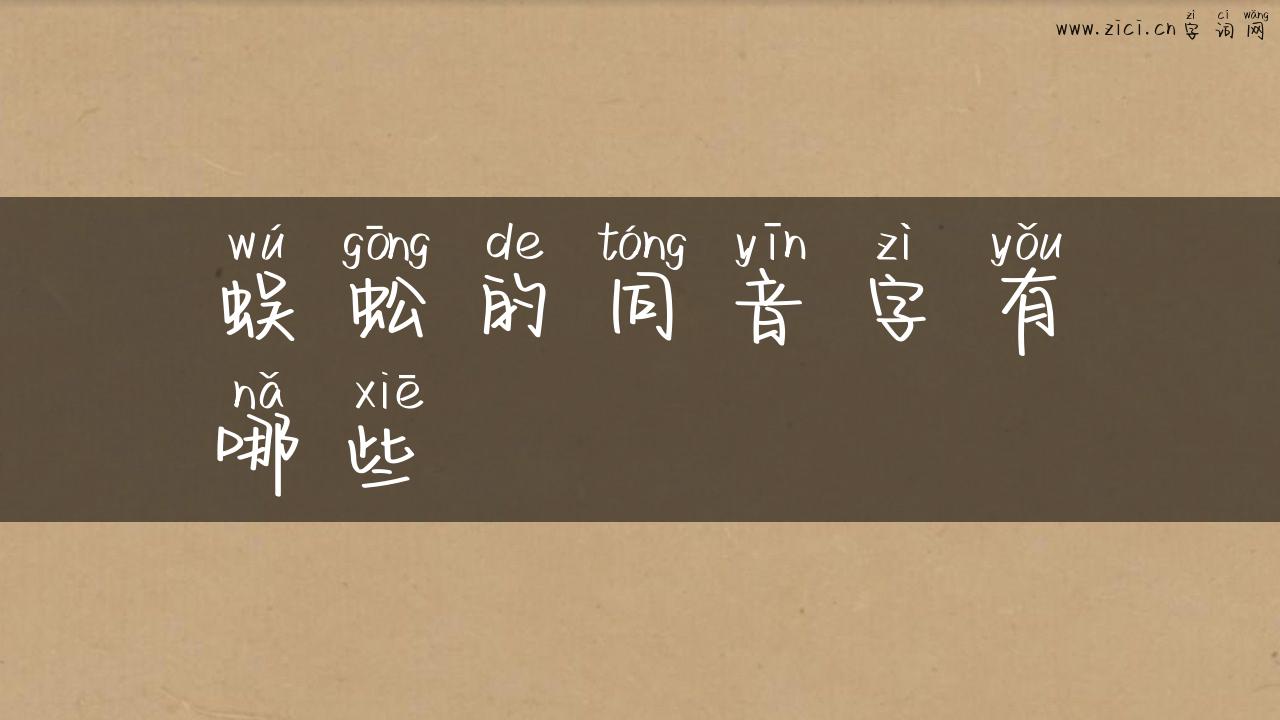 zì cí wǎng
www.zici.cn 字 词 网
wú gōng de tóng yīn zì yǒu
蜈 蚣 的 同 音 字 有
nǎ xiē
哪 些